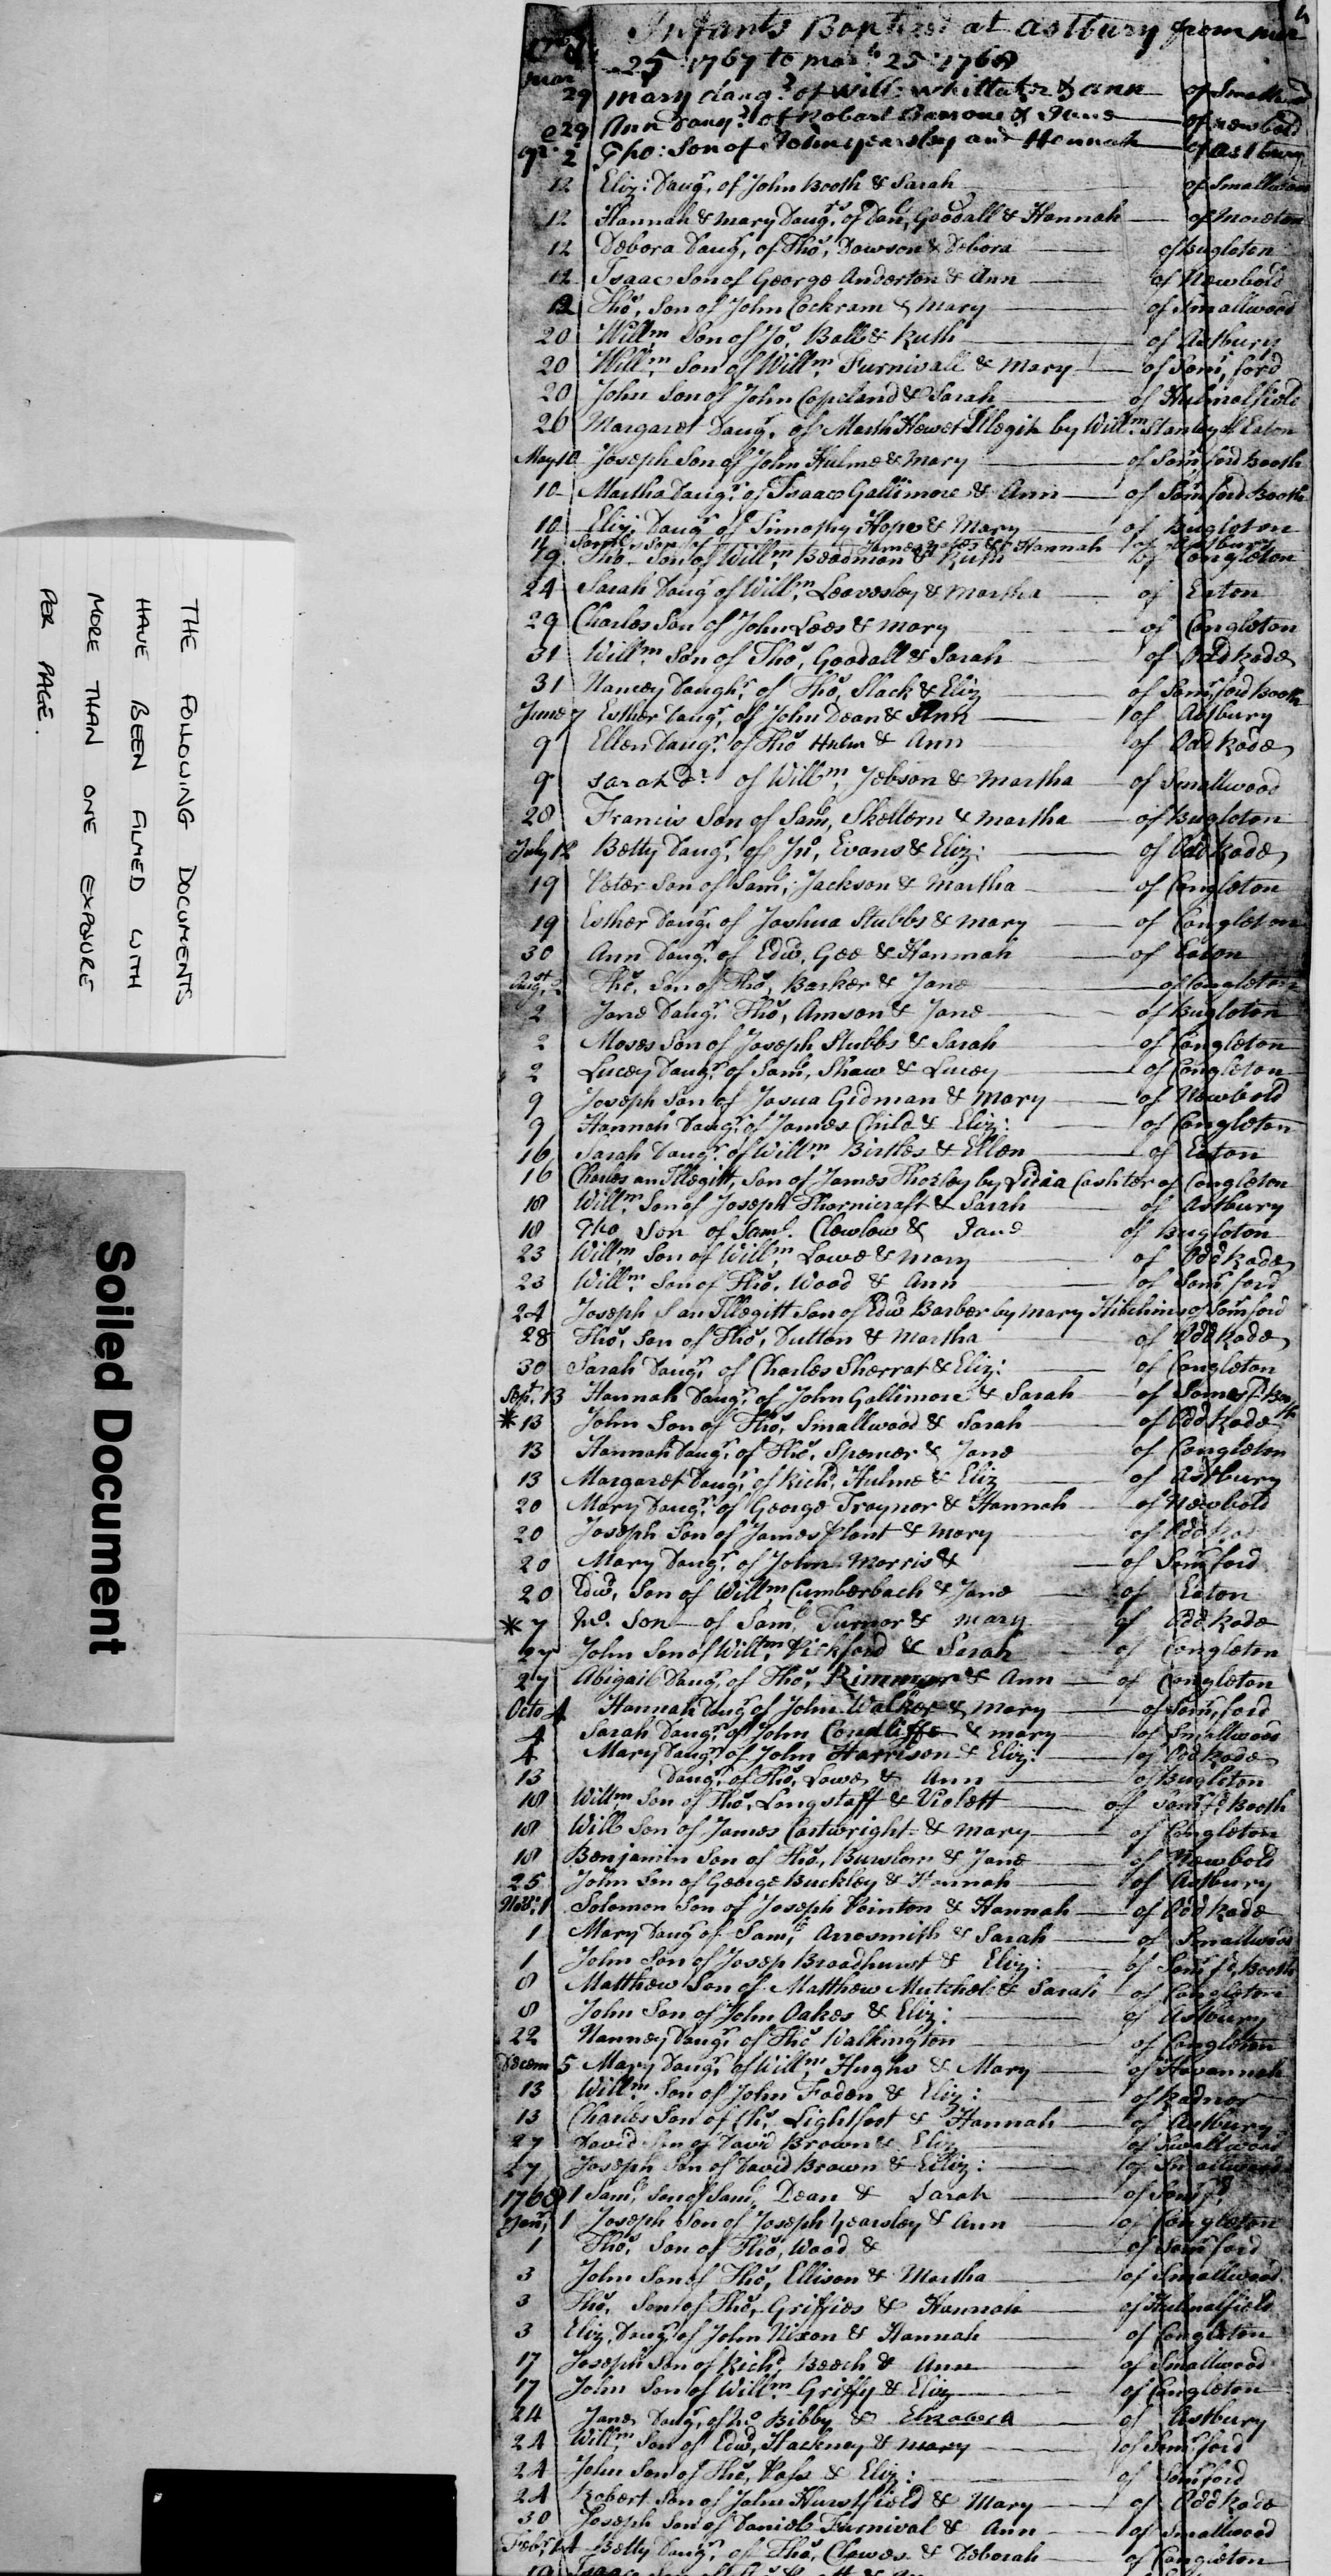 Infants Baptized at Astbury from mar
25 1767 to mar 25 1768
mar 29 mary daugr of Will: Whittaker & ann of Smallwood
29 Ann Daugr of Robart & Jane of newbold
2 Tho: Son of John yearsley and Hannah of astbury
12 Eliz: Daugr of John Booth & Sarah of Smallwood
12 Hannah & Mary Daugrs of Danl Goodall & Hannah of Moreton
12 Debora Daugr of Thos Dawson & Debora of Bugleton
12 Isaac Son of George Anderton & Ann of Newbold
12 Thos Son of John Cockram & Mary of Smallwood
20 Willm Son of Jos Ball & Ruth of Astbury
20 Willm Son of Willm Furnivall & Mary of Somrford
20 John Son of John Copeland & Sarah of Hulmalfield
26 Margaret Daugr of Marth Hewet Illegit by Willm Stanley of Eaton
May 10 Joseph Son of John Hulme & Mary of Somrford Booth
10 Martha Daugr of Isaac Gallimore & Ann of Somrford Booth
10 Eliz: Daugr of Timothy Hope & Mary of Bugleton
Samll son of James & Hannah of Astbury
19 Tho Son of Willm Beadman & Ruth of Congleton
24 Sarah Daugr of Willm Leavesley & Martha of Eaton
29 Charles Son of John Lees & Mary of Congleton
31 Willm Son of Thos Goodall & Sarah of Odd Rode
31 Nancey Daughr of Thos Slack & Eliz of Somrford Booth
June 7 Esther Daugr of John Dean & Ann of Astbury
9 Ellen Daugr of Thos Hulm & Ann of Odd Rode
9 Sarah Dr of Willm Jebson & Martha of Smallwood
28 Francis Son of Saml Skellern & Martha of Bugleton
July 12 Betty Daugr of Jno Evans & Eliz: of Odd Rode
19 Peter Son of Saml Jackson & Martha of Congleton
19 Esther Daugr of Joshua Stubbs & Mary of Congleton
30 Ann Daugr of Edwd Gee & Hannah of Eaton
Augst 2 Thos Son of Thos Barker & Jane of Congleton
2 Jane Daugr Thos Amson & Jane of Bugleton
2 Moses Son of Joseph Stubbs & Sarah of Congleton
2 Lucey Daugr of Saml Shaw & Lucey of Congleton
9 Joseph Son of Josua Gidman & Mary of Newbold
9 Hannah Daugr of James Child & Eliz: of Congleton
16 Sarah Daugr of Willm Birtles & Ellen of Eaton
16 Charles an Illegitt Son of James Thorley by Lidia Cashter of Congleton
18 Willm Son of Joseph Thornicraft & Sarah of Astbury
18 Tho Son of Saml Clowlow & Jane of Bugleton
23 Willm Son of Willm Lowe & Mary of Odd Rode
23 Willm Son of Thos Wood & Ann of Somrford
24 Joseph an Illegitt Son of Edwd Barber by Mary Hitchins of Somford
28 Thos Son of Thos Dutton & Martha of Odd Rode
30 Sarah Daugr of Charles Sherrat & Eliz: of Congleton
Sept 13 Hannah Daugr of John Gallimore & Sarah of Somerfd Booth
* 13 John Son of Thos Smallwood & Sarah of Odd Rode
13 Hannah Daugr of Thos Spencer & Jane of Congleton
13 Margaret Daugr of Richd Hulme & Eliz of Astbury
20 Mary Daugr of George Traynor & Hannah of Newbold
20 Joseph Son of James Plant & Mary of Odd Rod
20 Mary Daugr of John Morris & of Somrford
20 Edwd Son of Willm Cumberbach & Jane of Eaton
* 7 Son of Saml Turnor & Mary of Odd Rode
27 John Son of Willm Pickford & Sarah of Congleton
27 Abigail Daugr of Thos Rimmer & Ann of Congleton
Octo 4 Hannah Daugr of John Walker & Mary of Somrford
4 Sarah Daugr of John Condliffe & mary of Smallwood
4 Mary Daugr of John Harrison & Eliz: of Odd Rode
13 Daugr of Thos Lowe & Ann of Bugleton
18 Willm Son of Thos Longstaff & Violett of Somrfd Booth
18 Will Son of James Cartwright & Mary of Congleton
18 Benjamin Son of Thos Burslom & Jane of Newbold
25 John Son of George Buckley & Hannah of Astbury
Novr 1 Solomon Son of Joseph Pointon & Hannah of Odd Rode
1 Mary Daugr of Saml Arrosmith & Sarah of Smallwood
1 John Son of Josep Broadhurst & Eliz: of Somrfd Booth
8 Matthew Son of Matthew Mutchel & Sarah of Congleton
8 John Son of John Oakes & Eliz: of Astbury
22 Nanney Daugr of Thos Walkington of Congleton
Decem 5 Mary Daugr of Willm Hughs & Mary of Havannah
13 Willm Son of John Faden & Eliz: of Radnor
13 Charles Son of Chs Lightfoot & Hannah of Astbury
27 David Son of David Brown & Eliz of Smallwood
27 Joseph Son of David Brown & Elliz: of Smallwood
1768 1 Saml Son of Saml Dean & Sarah of Somrfd
Janr 1 Joseph Son of Joseph Yearsley & Ann of Congleton
1 Thos Son of Thos Wood & of Somrford
3 John Son of Thos Ellison & Martha of Smallwood
3 Thos Son of Thos Griffies & Hannah of Hulmalfield
3 Eliz. Daugr of John Nixon & Hannah of Congleton
17 Joseph Son of Richd Beech & Ann of Smallwood
17 John Son of Willm Griffy & Eliz of Congleton
24 Jane Daugr of Bibby & Elizabeth of Astbury
24 Willm Son of Edwd Hackney & Mary of Somrford
24 John Son of Thos Pass & Eliz: of Somrford
24 Robert Son of John Hurstfield & Mary of Odd Rode
30 Joseph Son of Daniel Furnival & Ann of Smallwood
Febr 14 Betty Daugr of Thos Clowes & Deborah of Congleton
THE FOLLOWING DOCUMENTS
HAVE BEEN FILMED WITH
MORE THAN ONE EXPOSURE
PER PAGE.
Soiled Document